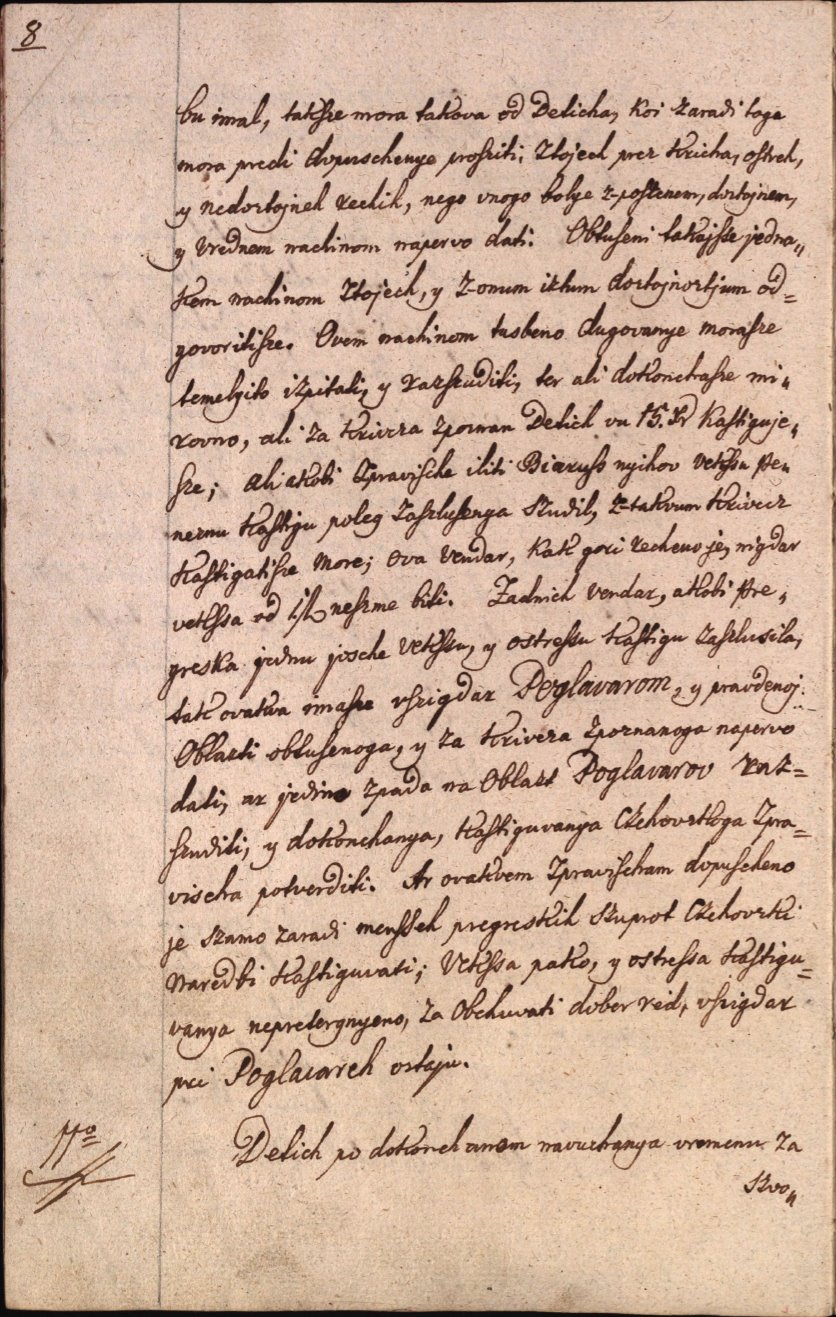 8
bu imal, takſze mora takova od Deticha, koi zaradi toga
mora predi dopuschenye proſziti; Ztojech prez kricha, oſtreh,
y nedoztojneh rechih, nego vnogo bolye z-poſtenem, doztojnem,
y vrednem nachinom napervo dati. Obtuseni takajſse jedna„
kem nachinom Ztojech, y z-onum iztum doztojnoztjum od=
govoritiſze. Ovem nachinom tusbeno dugovanye moraſze
temelyito izpitati, y razſzuditi, ter ali dokonchaſze mi„
rovno, ali za krivcza zpoznan Detich vu 15. Xr kaſtiguje„
ſze; ali akobi Zpravische iliti Biruſs nyihov vekſsu ſte„
nemu kaſtigu poleg Zaſzlusenya ſzudil, z-takvum krivecz
kaſtigatiſze more; ova vendar, kak gori recheno je, nigdar
vekſsa od neszme biti. Zadnich vendar, akobi pre„
greska jednu josche vekſsu, y ostreſsu kaſtigu zaſzlusila,
tak ovakva imaſze vſzigdar Poglavarom, y pravdenoj
Oblazti obtusenoga, y za krivcza zpoznanoga napervo
dati, ar jedino zpada na Oblazt Poglavarov raz=
ſzuditi, y dokonchanya, kaſtiguvanya Czehovzkoga Zpra=
vischa potverditi. Ar ovakvem Zpravischam dopuscheno
je szamo zaradi menſseh pregreskih szuprot Czehovzki
Naredbi kaſtiguvati; Vekſsa pako, y ostreſsa kaſtigu=
vanya nepretergnyeno, za Obchuvati dober réd, vſzigdar
pri Poglavareh oztaju.
11º Detich po dokonchanem navuchanya vremenu za
szvo„